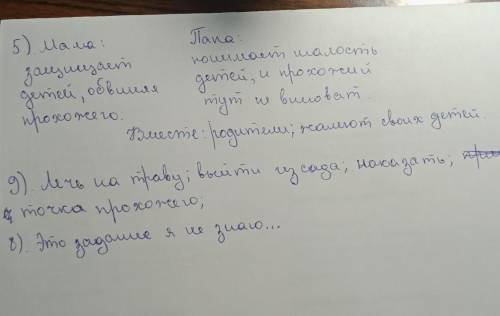 5) Мама:
защищает
детей, обвиняя
прохожего.
Папа:
понимает шалость
детей, и прохожий
тут не виноват.
Вместе: родители; жалеют своих детей.
9). Лечь на траву; выйти из сада; наказать;
точка прохожего;
8). Это задание я не знаю...